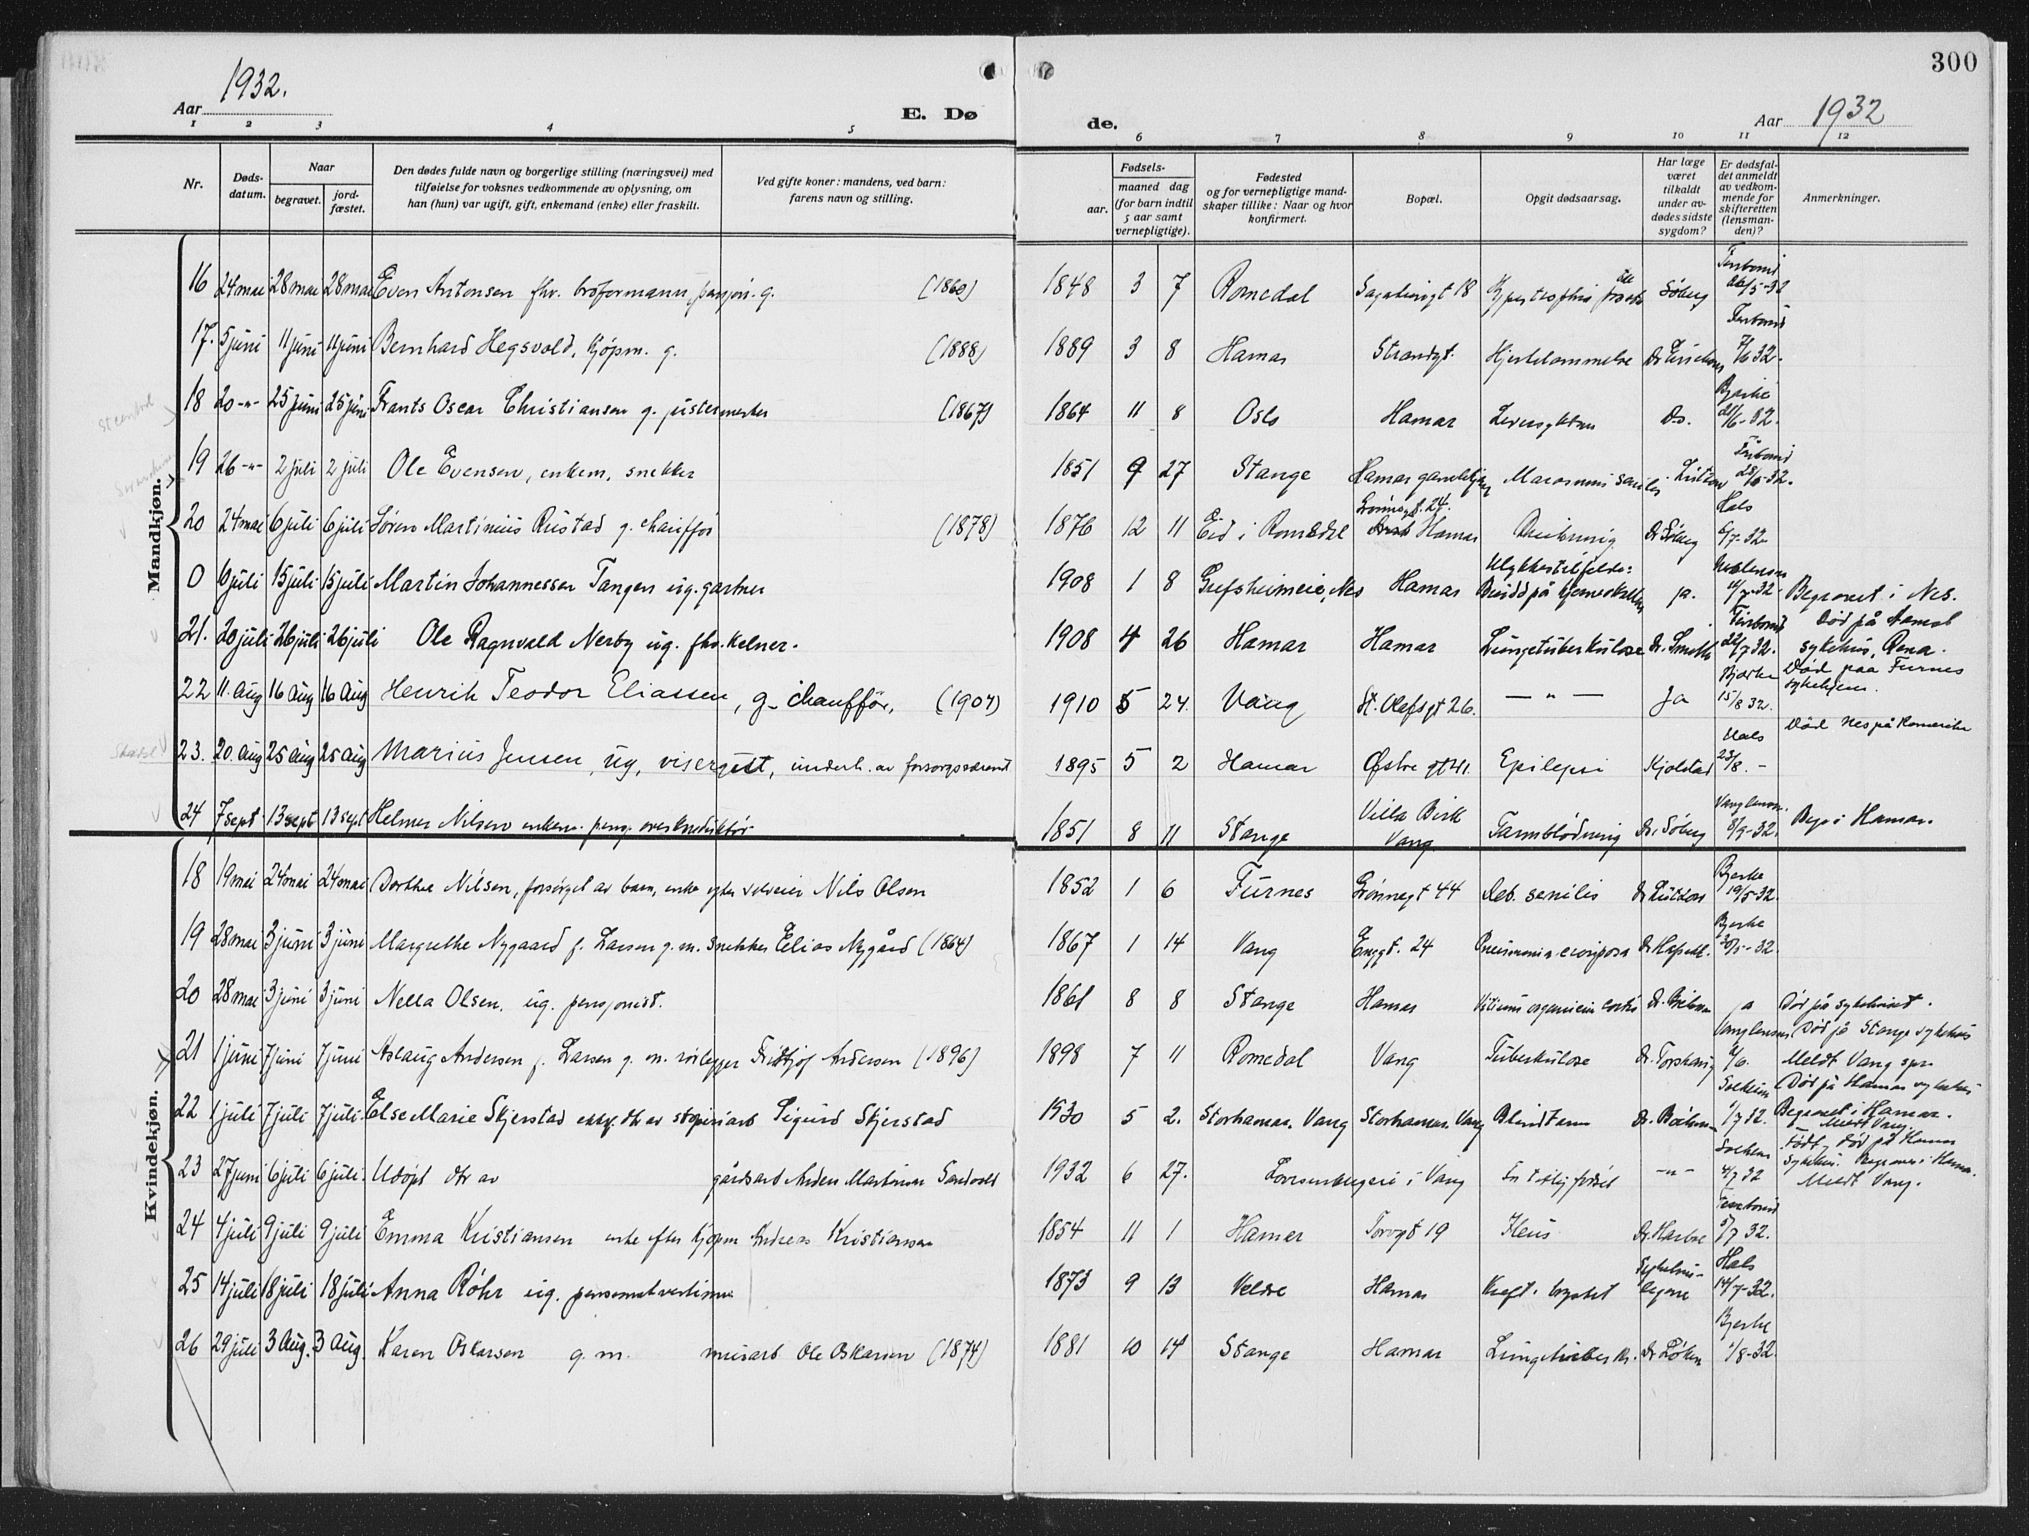 300
Aar 1932.
E. Dø
de.
Aar 1932
1 2 3 4 5 6 7 8 9 10 11 12
Nr.
Døds-
datum.
Naar
begravet.
jord-
fæstet.
Den dødes fulde navn og borgerlige stilling (næringsvei) med
tilføielse for voksnes vedkommende av oplysning, om
han (hun) var ugift, gift, enkemand (enke) eller fraskilt.
Ved gifte koner: mandens, ved barn:
farens navn og stilling.
Fødsels-
aar.
maaned dag
(for barn indtil
5 aar samt
vernepligtige).
Fødested
og for vernepligtige mand-
skaper tillike: Naar og hvor
konfirmert.
Bopæl.
Opgit dødsaarsag.
Har læge
været
tilkaldt
under av-
dødes sidste
sygdom?
Er dødsfal-
det anmeldt
av vedkom-
mende for
skifteretten
(lensman-
den)?
Anmerkninger.
Mandkjøn.
16 24 mai 28 mai 28 mai Even Antonsen fhv. broformann, pensjon. g. (1860) 1848 3 7 Romedal 18 Søberg 5-32
17. 5 juni 11 juni 11 juni Bernhard Hegsvold, kjöpm. g. (1888) 1889 3 8 Hamar Strandgt. Hjertelammelse 7/6 32.
18 20 -"- 25 juni 25 juni Frants Oscar Christiansen g. justermester (1867) 1864 11 8 Oslo Hamar Leversykdom Do. Bjerke 21/6-32.
19 26 -"- 2 juli 2 juli Ole Evensen, enkem. snekker 1851 9 27 Stange Hamar gamlehjem Marasmus senilis 28/6-32.
20 24 mai 6 juli 6 juli Søren Martinius Rustad g. chauffør (1878) 1876 12 11 Eid i Romedal Grönnegt. 24. Hamar Drukning Dr Søberg Hals 6/7-32
0 6 juli 15 juli 15 juli Martin Johannessen Tangen ug. gartner 1908 1 8 Nes Hamar Ulykkestilfelde: ja. 11/7-32 Begravet i Nes.
21. 20 juli 26 juli 26 juli Ole Ragnvald Nerby ug. fhv. kelner. 1908 4 26 Hamar Hamar Lungetuberkulose Dr. Smith 22/7 32. Död på Aamot
sykehus, Rena.
22 11. Aug 16 Aug 16 Aug Henrik Teodor Eliassen, g. chafför, (1907) 1910 5 24. Vang St. Olafsgt 26. — " — Ja Bjerke 15/8 32. Död paa Furnes
sykehjem.
23. 20. Aug 25 Aug 25 Aug Marius Jensen, ug, visergutt, underh. av forsorgsvesenet 1895 5 2 Hamar Østre gt 41. Epilepsi Kjølstad Hals 23/8. - Död Nes på Romerike
24 7 sept 13 sept 13 sept Helmer Nilsen enkem. pens. overkonduktör 1851 8 11 Stange Villa Birk
Vang Tarmblödning Dr. Søberg Vang lensm. 8/9-32. Begr i Hamar.
Kvindekjøn.
18 19 mai 24 mai 24 mai Dorthea Nilsen, forsörget av barn, enke efter selveier Nils Olsen 1852 1 6 Furnes Grönnegt 44 Deb. senilis Bjerke 19/5-32.
19 28 mai 3 juni 3 juni Margrethe Nygaard f. Larsen g. m. snekker Elias Nygård (1864) 1867 1 14 Vang Enggt. 24 Bjerke 30/5-32.
20 28 mai 3 juni 3 juni Nella Olsen, ug. pensjonist. 1861 8 8 Stange Hamar Vitium organicum cordis ja Död på sykehuset.
21 1 juni 7 juni 7 juni Aslaug Andersen f. Larsen g. m. rörlegger Fridtjof Andersen (1896) 1898 7 11 Romedal Vang Tuberkulose Vang lensm. Död på Stange sykehus
Meldt Vang spr
22 1 juli 7 juli 7 juli Else Marie Skjerstad ekte dtr av Sigurd Skjerstad 1930 5 2. Storhamar. Vang Storhamar. Vang Blindtarm Solheim 1/7 32. Död på Hamar sykehus
Begravet i Hamar.
Meldt Vang.
23 27 juni 6 juli 6 juli. Udöpt dtr av gårdsarb Anders Martinius Sandvold 1932 6 27. i Vang For tidlig födsel -"- Solheim 4/7 32 Födt, död på Hamar
sykehus. Begravet i Hamar.
Meldt Vang.
24 4 juli 9 juli 9 juli Emma Kristiansen enke efter kjøpm Andreas Kristiansen 1854 11 1 Hamar Torvgt 19 Ileus 5/7 32.
25 14 juli 18 juli 18 juli Anna Röhr ug. pensionatvertinne 1873 9 13 Veldre Hamar Kreft. brystet Hals 14/7-32.
26 29 juli 3 Aug. 3 Aug. Karen Oskarsen g. m. murarb Ole Oskarsen (1874) 1881 10 14 Stange Hamar Lungetuberk. Dr Löken Bjerke 1/8-32.